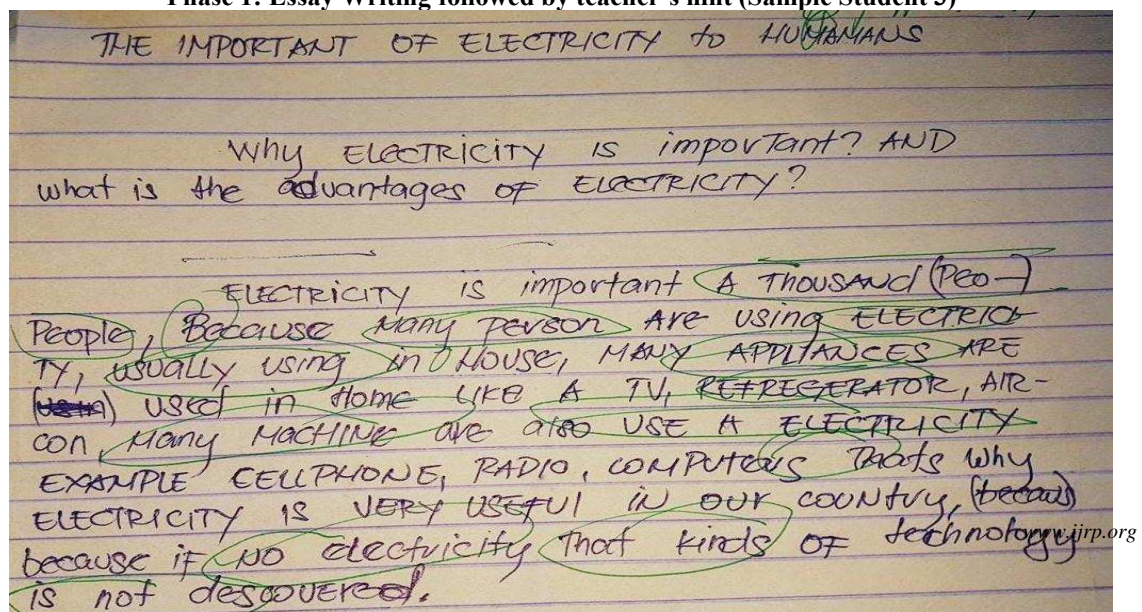 Phase 1: Essay Writing followed by teacher's hint (Sample Student 3)
THE IMPORTANT OF ELECTRICITY to HUMANS
Why ELECTRICITY is important? AND
what is the advantages OF ELECTRICITY?
ELECTRICITY is important A THOUSAND (Peo-)
People, Because Many person Are using ELECTRICI-
TY, usually using in House, MANY APPLIANCES ARE
used in Home LIKE A TV, REFREGERATOR, AIR-
con, Many MACHINE are also USE A ELECTRICITY
EXAMPLE CELLPHONE, RADIO, COMPUTERS Thats Why
ELECTRICITY IS VERY USEFUl IN OUr COUNtry, (becaus)
because if NO electricity That kinds OF technology
is not descovered.
www.ijrp.org